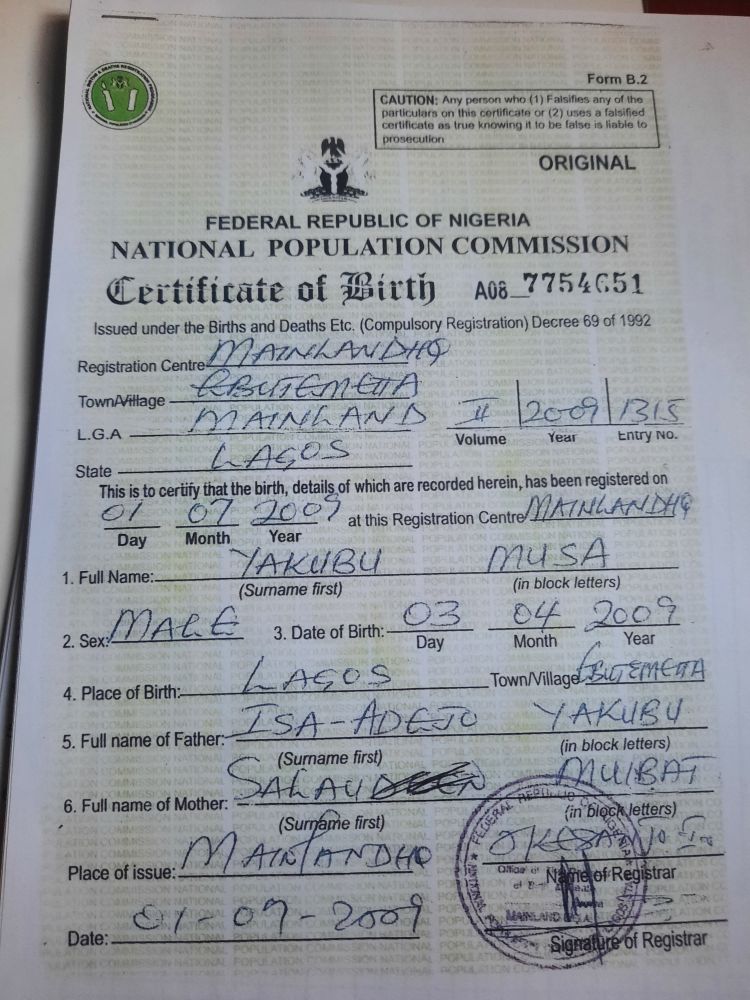 Form B.2
CAUTION: Any person who (1) Falsifies any of the
particulars on this certificate or (2) uses a falsified
certificate as true knowing it to be false is liable to
prosecution
ORIGINAL
FEDERAL REPUBLIC OF NIGERIA
NATIONAL POPULATION COMMISSION
Certificate of Birth A08 7754651
Issued under the Births and Deaths Etc. (Compulsory Registration) Decree 69 of 1992
Registration Centre MAINLAND HQ
Town/Village EBUTEMETTA
L.G.A MAINLAND II 2009 1315
Volume Year Entry No.
State LAGOS
This is to certify that the birth, details of which are recorded herein, has been registered on
01 07 2009 at this Registration Centre MAINLAND HQ
Day Month Year
1. Full Name: YAKUBU MUSA
(Surname first) (in block letters)
2. Sex: MALE 3. Date of Birth: 03 04 2009
Day Month Year
4. Place of Birth: LAGOS Town/Village EBUTEMETTA
5. Full name of Father: ISA-ADEJO YAKUBU
(Surname first) (in block letters)
6. Full name of Mother: SALAU MUIBAT
(Surname first) (in block letters)
Place of issue: MAINLAND HQ
Name of Registrar
Date: 01-07-2009
Signature of Registrar